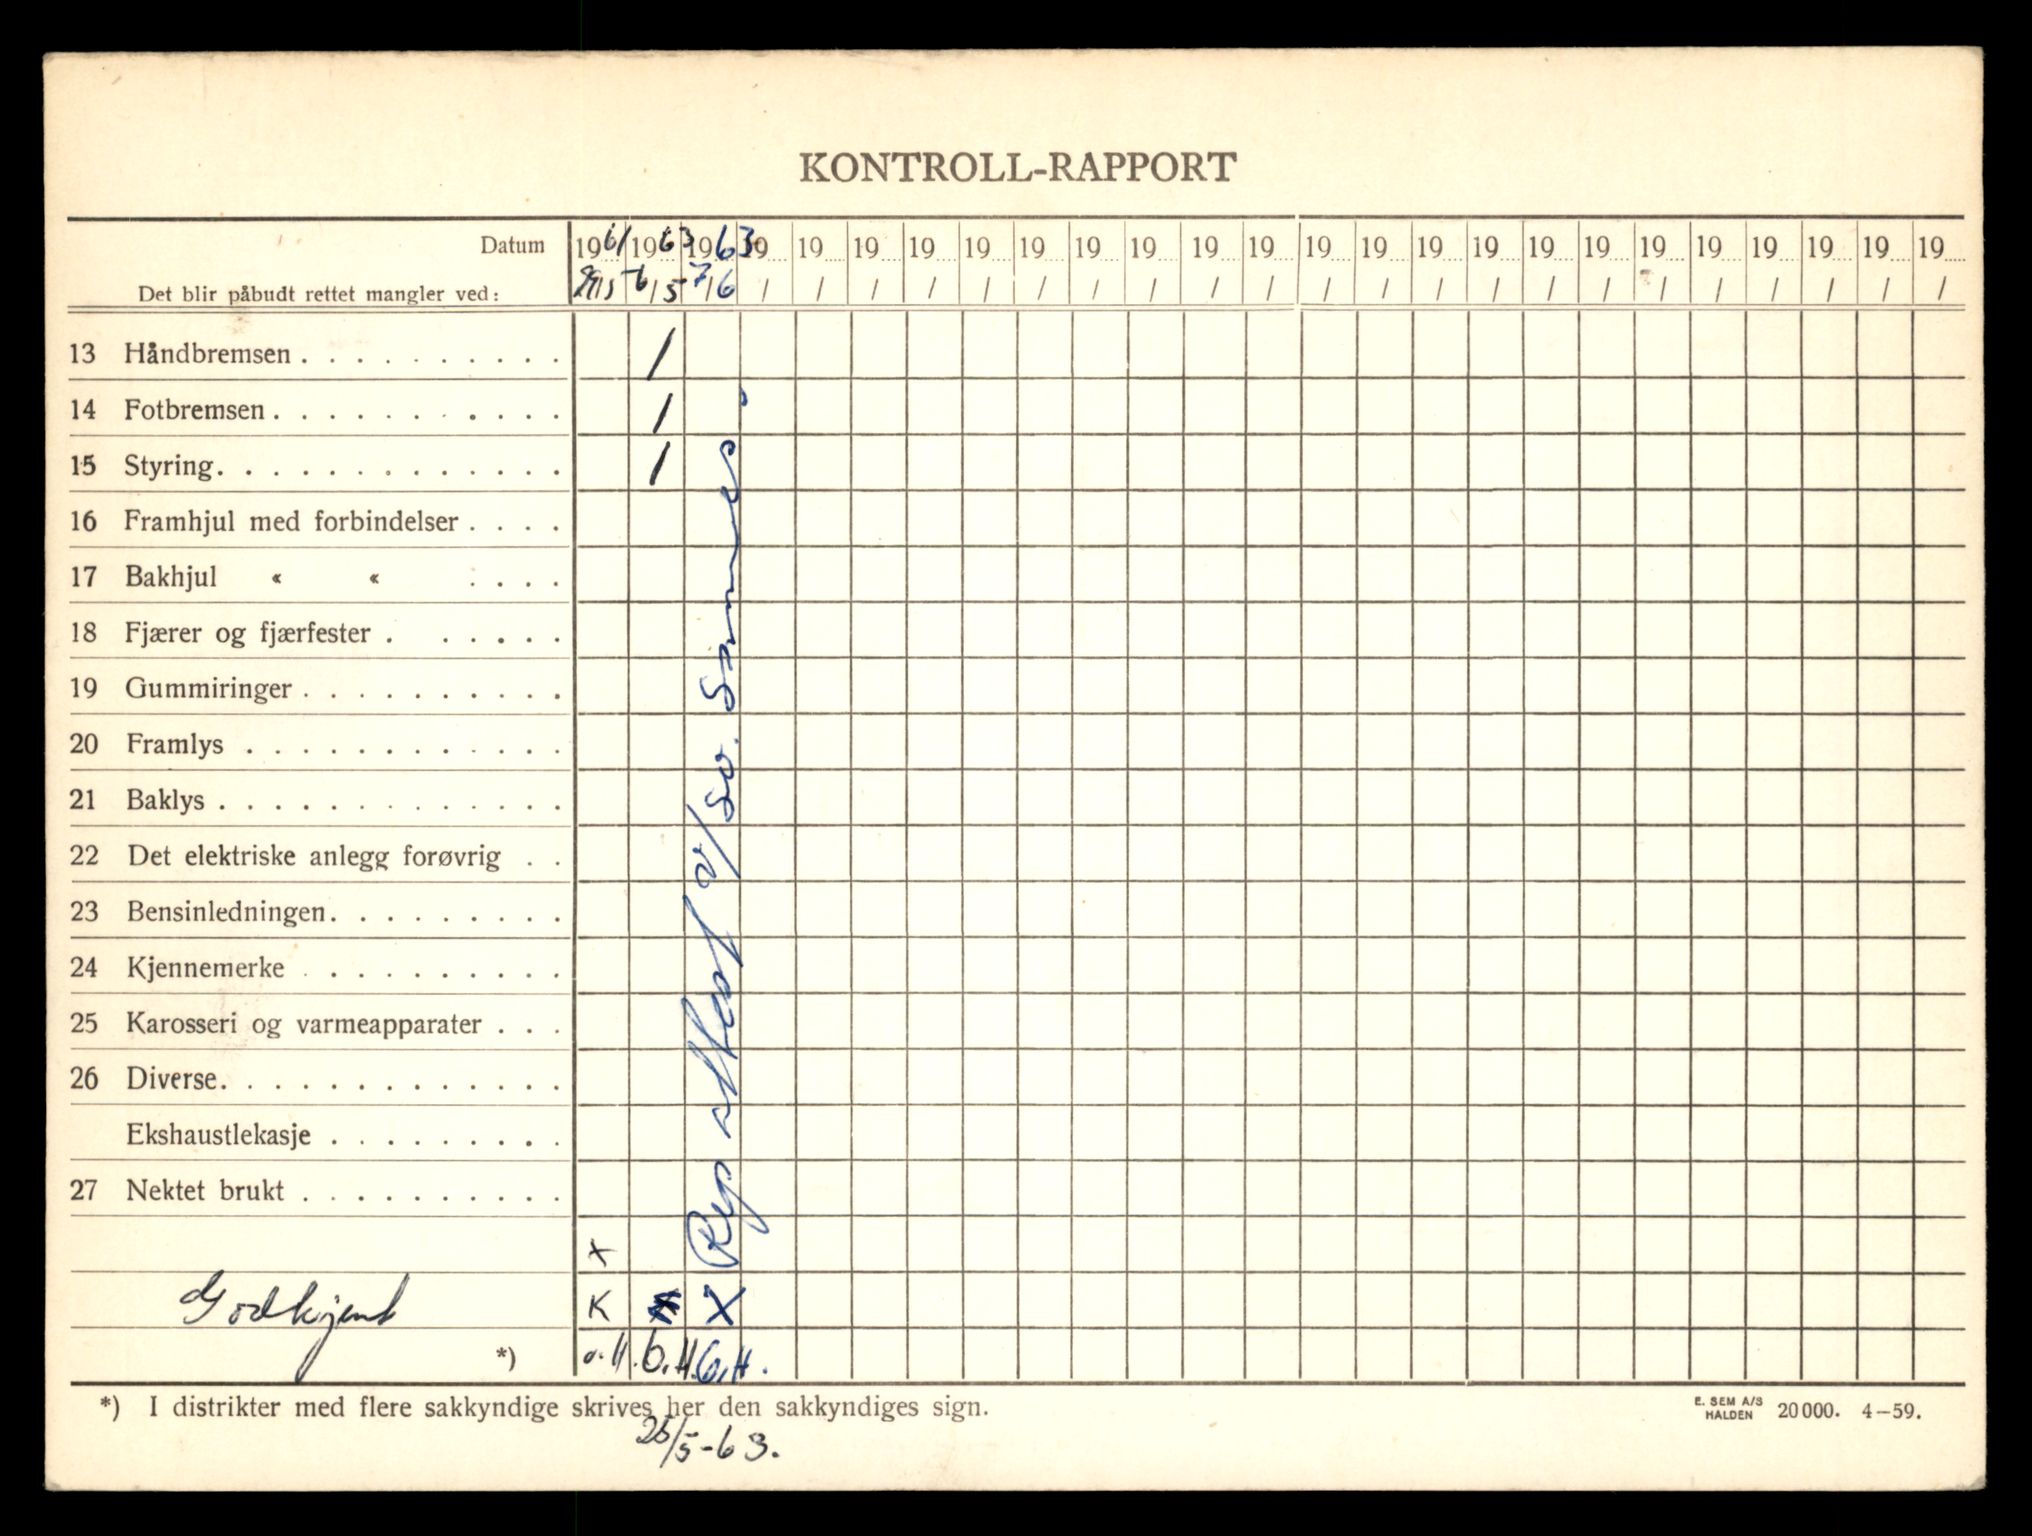 KONTROLL-RAPPORT
Datum 1961 1963 1963 19 19 19 19 19 19 19 19 19 19 19 19 19 19 19 19 19 19 19 19 19 19
Det blir påbudt rettet mangler ved: /5 6/5 7/6 / / / / / / / / / / / / / / / / / / / / / /
13 Håndbremsen . . . . . . . . . . /
14 Fotbremsen . . . . . . . . . . . /
15 Styring. . . . . . . . . . . . . /
16 Framhjul med forbindelser . . . .
17 Bakhjul « « . . . .
18 Fjærer og fjærfester . . . . . .
19 Gummiringer . . . . . . . . . .
20 Framlys . . . . . . . . . . . .
21 Baklys . . . . . . . . . . . . .
22 Det elektriske anlegg forøvrig . .
23 Bensinledningen. . . . . . . . .
24 Kjennemerke . . . . . . . . . .
25 Karosseri og varmeapparater . . .
26 Diverse. . . . . . . . . . . . .
Ekshaustlekasje . . . . . . . . .
27 Nektet brukt . . . . . . . . . .
x
Rep attest v/ Sv.
Godkjent K X
*) o.H. O.H. O.H.
*) I distrikter med flere sakkyndige skrives her den sakkyndiges sign.
25/5-63.
E. SEM A/S
HALDEN 20000. 4—59.